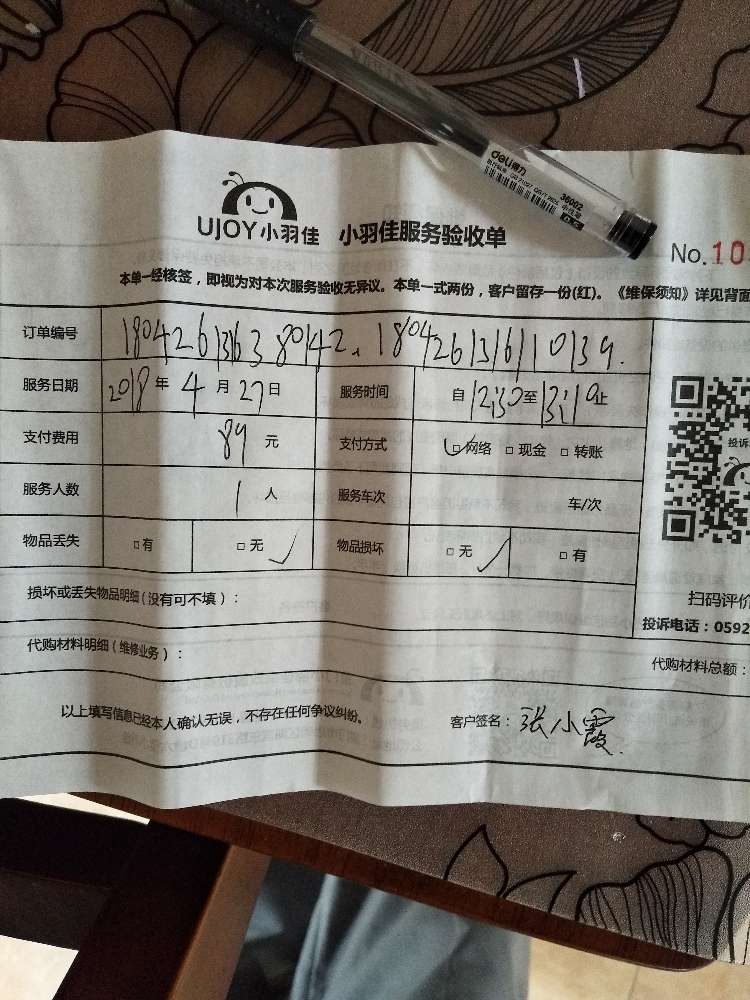 deli得力
36002
中性笔
0.5
UJOY小羽佳 小羽佳服务验收单
No.10
本单一经核签，即视为对本次服务验收无异议。本单一式两份，客户留存一份(红)。《维保须知》详见背面
订单编号 1804261316380142、1804261316110139.
服务日期 2018年4月27日 服务时间 自12:30至13:10止
支付费用 89元 支付方式 □网络 □现金 □转账
服务人数 1人 服务车次 车/次
投诉
物品丢失 □有 □无 物品损坏 □无 □有
损坏或丢失物品明细(没有可不填)：
扫码评价
投诉电话：0592
代购材料明细(维修业务)：
代购材料总额：
以上填写信息已经本人确认无误，不存在任何争议纠纷。 客户签名：张小霞